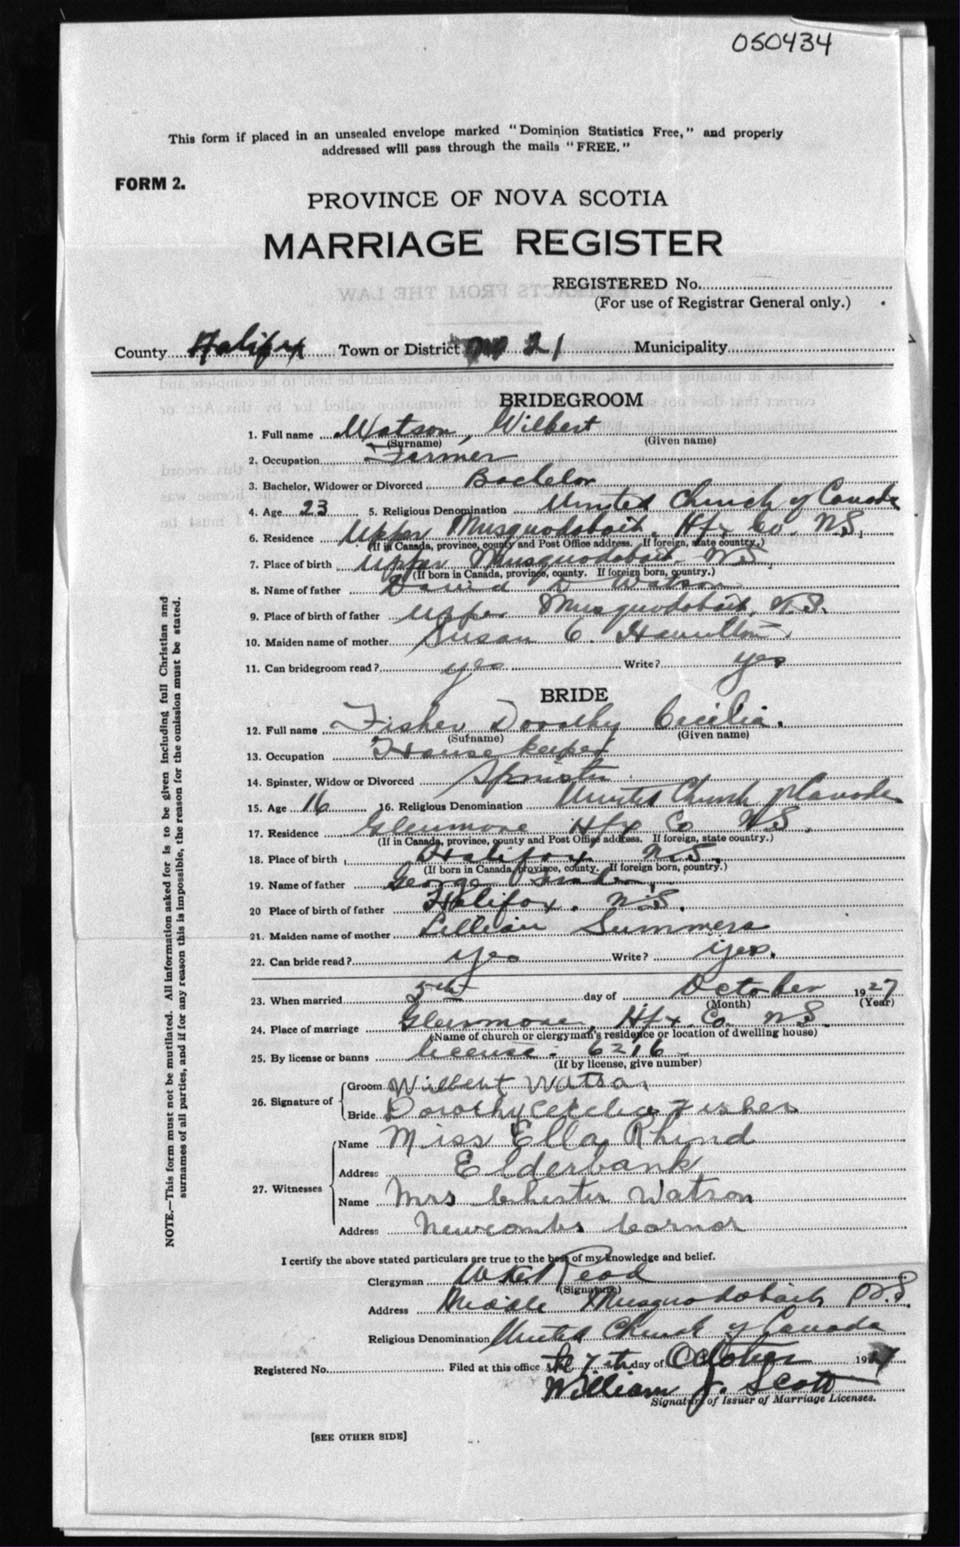 050434
This form if placed in an unsealed envelope marked "Dominion Statistics Free," and properly
addressed will pass through the mails "FREE."
FORM 2.
PROVINCE OF NOVA SCOTIA
MARRIAGE REGISTER
REGISTERED No.
(For use of Registrar General only.)
County Halifax Town or District No 21 Municipality
BRIDEGROOM
1. Full name Watson, Wilbert
(Surname) (Given name)
2. Occupation Farmer
3. Bachelor, Widower or Divorced Bachelor
4. Age 23 5. Religious Denomination United Church of Canada
6. Residence Upper Musquodoboit, Hfx Co. N.S.
(If in Canada, province, county and Post Office address. If foreign, state country.)
7. Place of birth Upper Musquodoboit, N.S.
(If born in Canada, province, county. If foreign born, country.)
8. Name of father David Watson
9. Place of birth of father Upper Musquodoboit, N.S.
10. Maiden name of mother Susan C. Hamilton
11. Can bridegroom read? yes Write? yes
BRIDE
12. Full name Fisher Dorothy Cecilia.
(Surname) (Given name)
13. Occupation House keeper
14. Spinster, Widow or Divorced Spinster
15. Age 16 16. Religious Denomination United Church of Canada
17. Residence Glenmore Hfx Co N.S.
(If in Canada, province, county and Post Office address. If foreign, state country.)
18. Place of birth Halifax N.S.
(If born in Canada, province, county. If foreign born, country.)
19. Name of father George Fisher
20 Place of birth of father Halifax. N.S.
21. Maiden name of mother Lillian Summers
22. Can bride read? yes Write? yes.
23. When married 5th day of October 1927
(Month) (Year)
24. Place of marriage Glenmore, Hfx. Co. N.S.
(Name of church or clergyman's residence or location of dwelling house)
25. By license or banns license. 6216
(If by license, give number)
26. Signature of Groom Wilbert Watson
Bride Dorothy Cecelia Fisher
27. Witnesses Name Miss Ella Rhind
Address Elderbank
Name Mrs Chester Watson
Address Newcombs Corner
I certify the above stated particulars are true to the best of my knowledge and belief.
Clergyman Read
(Signature)
Address Middle Musquodoboit N.S.
Religious Denomination United Church of Canada
Registered No. Filed at this office the 7th day of October 1927
William J. Scott
Signature of Issuer of Marriage Licenses.
[SEE OTHER SIDE]
NOTE.—This form must not be mutilated. All information asked for is to be given including full Christian and
surnames of all parties, and if for any reason this is impossible, the reason for the omission must be stated.